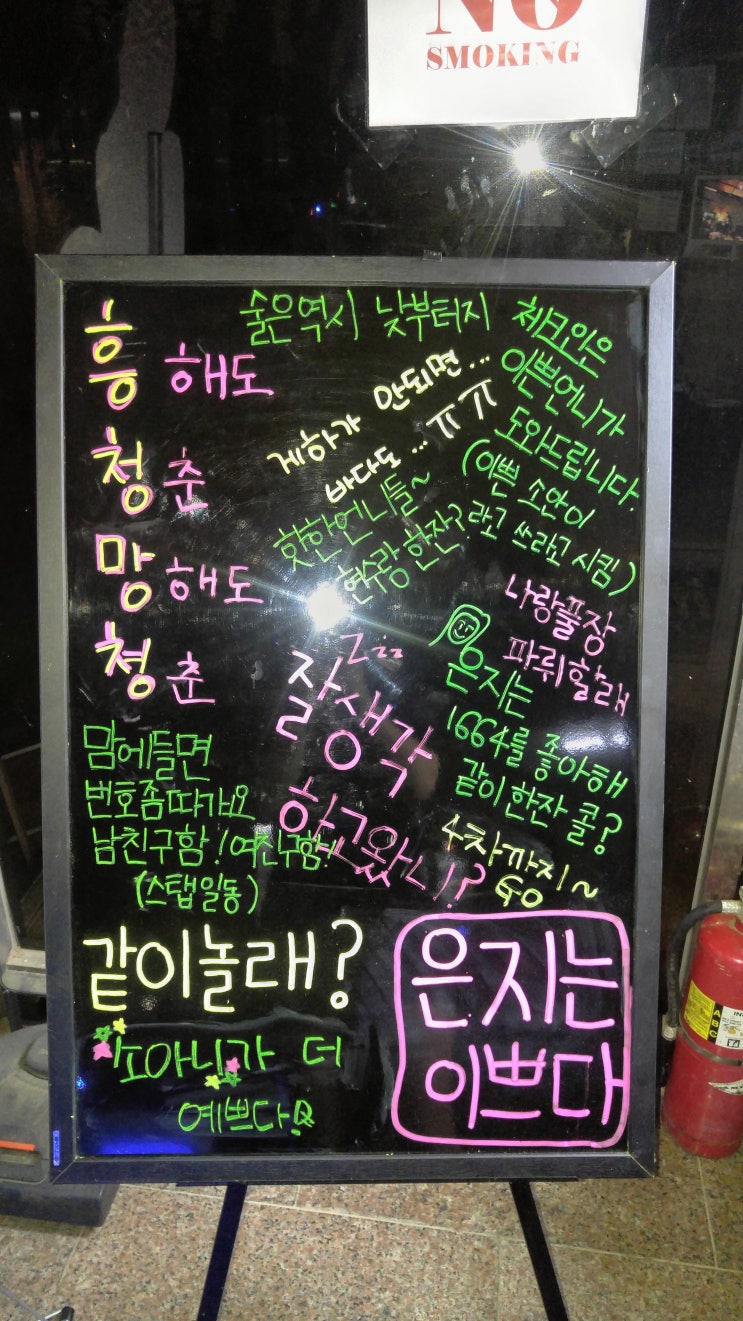 NO
SMOKING
술은역시 낮부터지
흥해도
청춘
망해도
청춘
게하가 안되면...
바다도...ㅠㅠ
체크인은
이쁜언니가
도와드립니다.
(이쁜 소안이
라고 쓰라고 시킴)
핫한언니들~
현수랑 한잔?
나랑풀장
파뤼할래
잘생각
하고왔니?
은지는
1664를 좋아해
같이한잔 콜?
4차까지~
GO
맘에들면
번호좀따가요
남친구함! 여친구함!
(스탭일동)
같이놀래?
소아니가 더
예쁘다
은지는
이쁘다